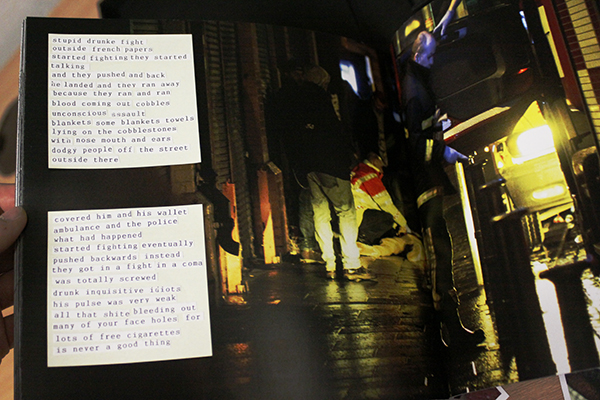 stupid drunke fight
outside french papers
started fighting they started
talking
and they pushed and back
he landed and they ran away
because they ran and ran
blood coming out cobbles
unconscious assault
blankets some blankets towels
lying on the cobblestones
with nose mouth and ears
dodgy people off the street
outside there
covered him and his wallet
ambulance and the police
what had happened
started fighting eventually
pushed backwards instead
they got in a fight in a coma
was totally screwed
drunk inquisitive idiots
his pulse was very weak
all that shite bleeding out
many of your face holes for
lots of free cigarettes
is never a good thing